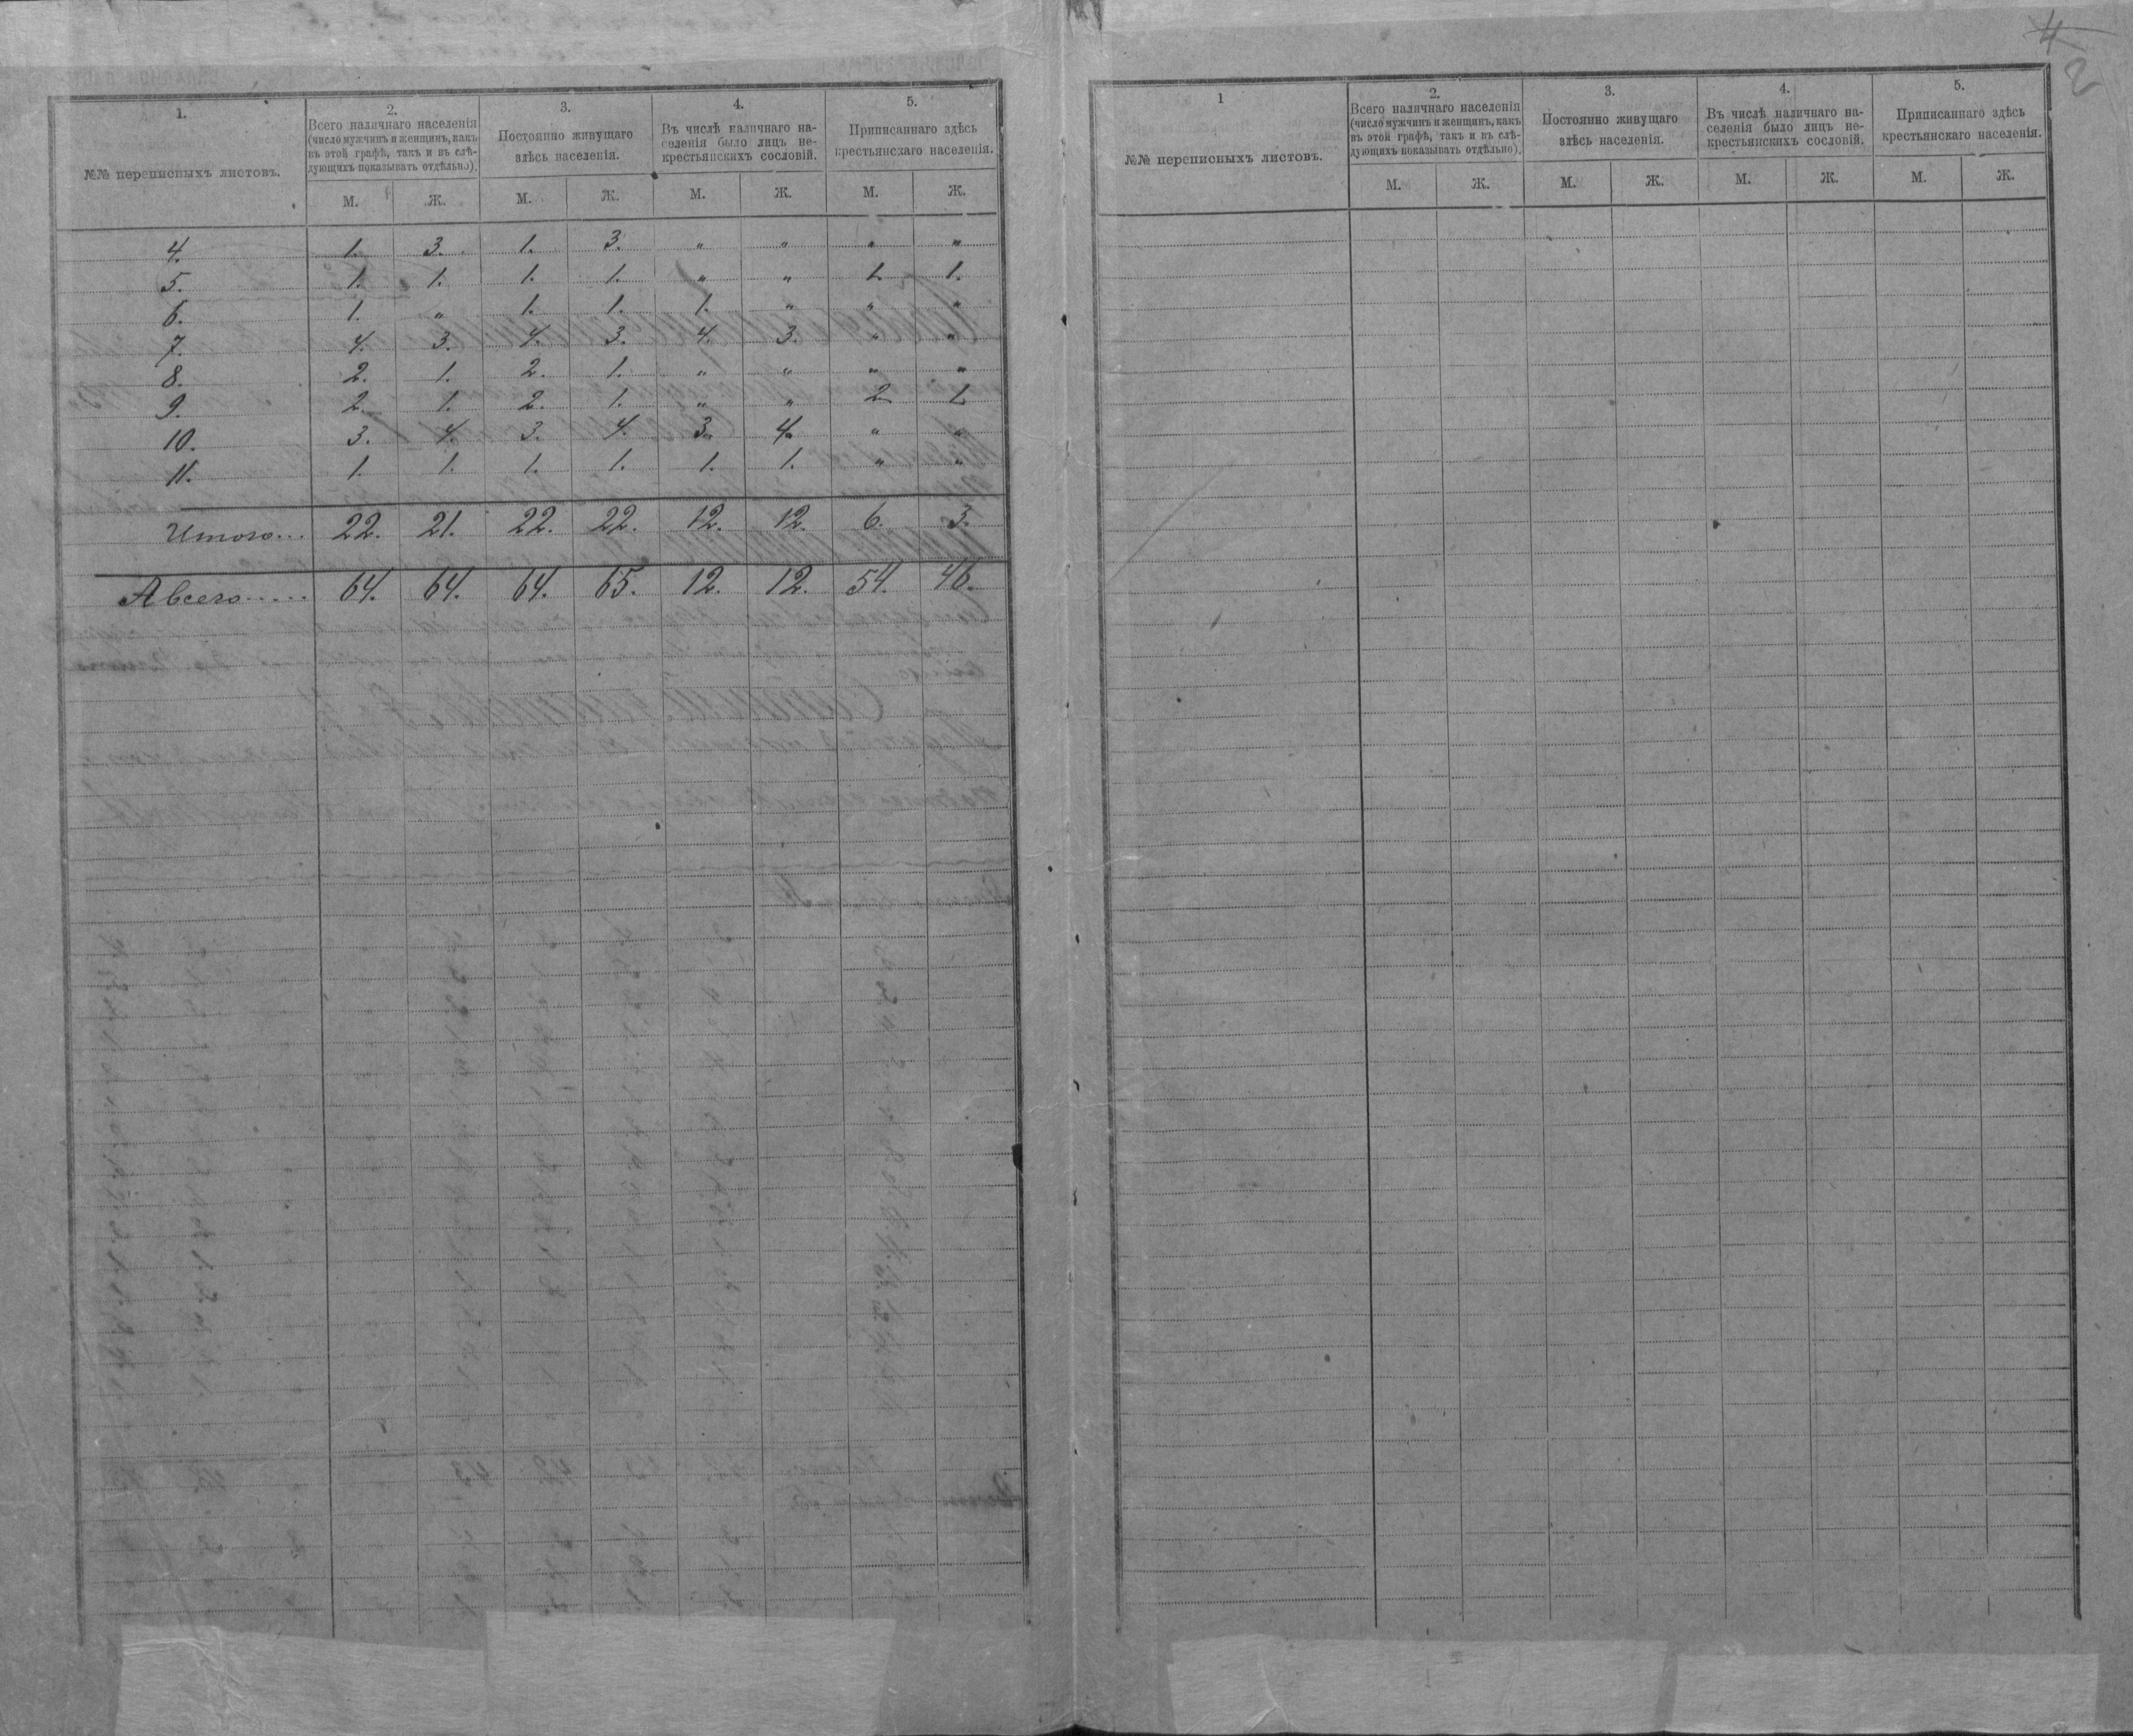 1.
№№ переписныхъ листовъ.
2.
Всего наличнаго населенія
(число мужчинъ и женщинъ, какъ
въ этой графѣ, такъ и въ слѣ-
дующихъ показывать отдѣльно).
3.
Постоянно живущаго
здѣсь населенія.
4.
Въ числѣ наличнаго на-
селенія было лицъ не-
крестьянскихъ сословій.
5.
Приписаннаго здѣсь
крестьянскаго населенія.
М. Ж. М. Ж. М. Ж. М. Ж.
4. 1. 3. 1. 3. „ „ „ „
5. 1. 1. 1. 1. „ „ 1. 1.
6. 1. „ 1. 1. 1. „ „ „
7. 4. 3. 4. 3. 4. 3. „ „
8. 2. 1. 2. 1. „ „ „ „
9. 2. 1. 2. 1. „ „ 2 1.
10. 3. 4. 3. 4. 3. 4. „ „
11. 1. 1. 1. 1. 1. 1. „ „
Итого... 22. 21. 22. 22. 12. 12. 6. 3.
А всего..... 64. 64. 64. 65. 12. 12. 54. 46.
4
2
1
№№ переписныхъ листовъ.
2.
Всего наличнаго населенія
(число мужчинъ и женщинъ, какъ
въ этой графѣ, такъ и въ слѣ-
дующихъ показывать отдѣльно).
3.
Постоянно живущаго
здѣсь населенія.
4.
Въ числѣ наличнаго на-
селенія было лицъ не-
крестьянскихъ сословій.
5.
Приписаннаго здѣсь
крестьянскаго населенія.
М. Ж. М. Ж. М. Ж. М. Ж.